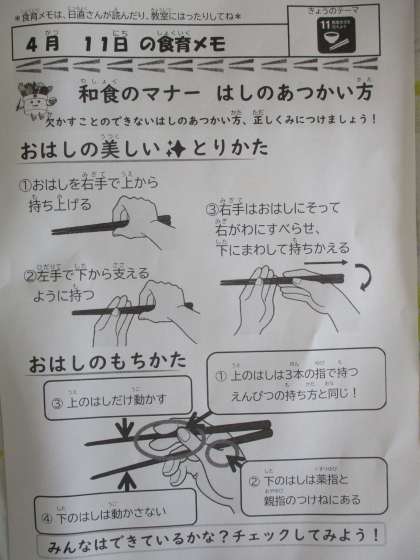 ＊食育メモは、日直さんが読んだり、教室にはったりしてね＊
きょうのテーマ
11
4月 11日 の食育メモ
和食のマナー はしのあつかい方
欠かすことのできないはしのあつかい方、正しくみにつけましょう！
おはしの美しいとりかた
①おはしを右手で上から
持ち上げる
②左手で下から支える
ように持つ
③右手はおはしにそって
右がわにすべらせ、
下にまわして持ちかえる
おはしのもちかた
① 上のはしは3本の指で持つ
えんぴつの持ち方と同じ！
③ 上のはしだけ動かす
② 下のはしは薬指と
親指のつけねにある
④ 下のはしは動かさない
みんなはできているかな？チェックしてみよう！